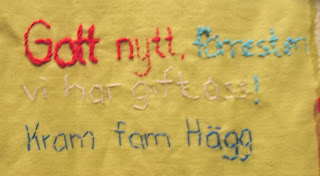 Gott nytt, förresten
vi har gift oss!
Kram fam Hägg